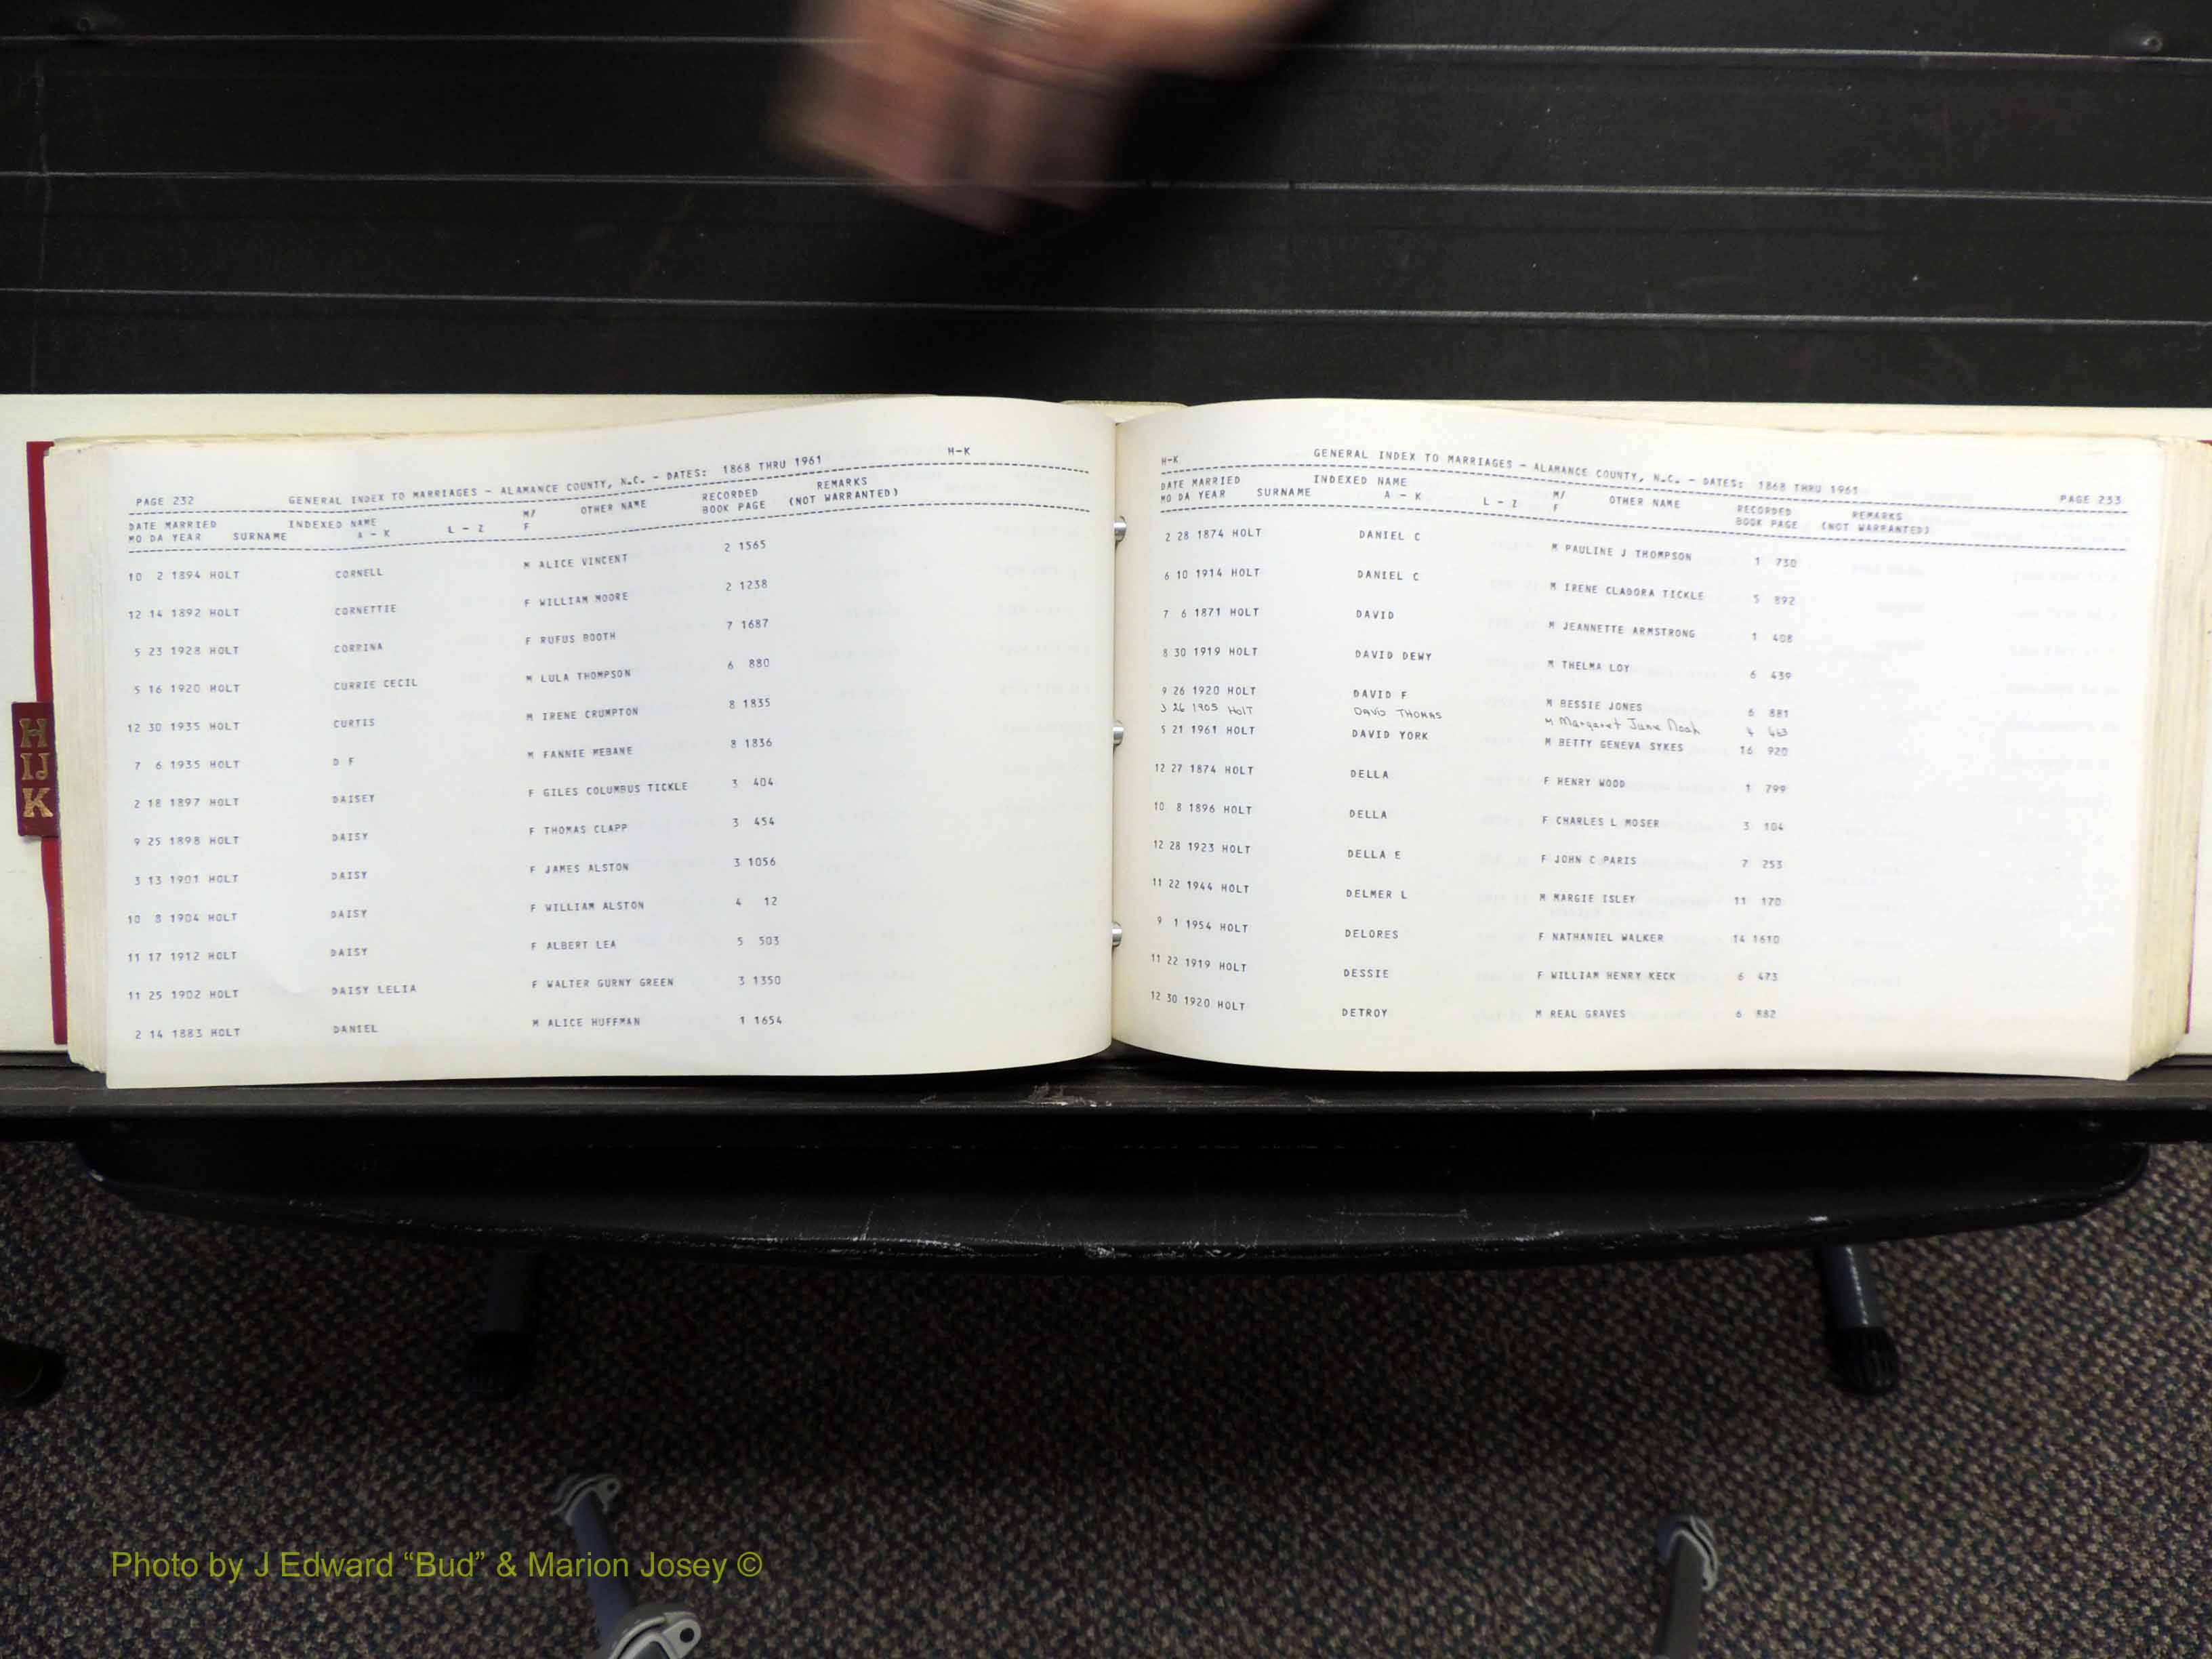 H
IJ
K
PAGE 232 GENERAL INDEX TO MARRIAGES - ALAMANCE COUNTY, N.C. - DATES: 1868 THRU 1961 H-K
DATE MARRIED INDEXED NAME M/ OTHER NAME RECORDED REMARKS
MO DA YEAR SURNAME A - K L - Z F BOOK PAGE (NOT WARRANTED)
10 2 1894 HOLT CORNELL M ALICE VINCENT 2 1565
12 14 1892 HOLT CORNETTIE F WILLIAM MOORE 2 1238
5 23 1928 HOLT CORRINA F RUFUS BOOTH 7 1687
5 16 1920 HOLT CURRIE CECIL M LULA THOMPSON 6 880
12 30 1935 HOLT CURTIS M IRENE CRUMPTON 8 1835
7 6 1935 HOLT D F M FANNIE MEBANE 8 1836
2 18 1897 HOLT DAISEY F GILES COLUMBUS TICKLE 3 404
9 25 1898 HOLT DAISY F THOMAS CLAPP 3 454
3 13 1901 HOLT DAISY F JAMES ALSTON 3 1056
10 8 1904 HOLT DAISY F WILLIAM ALSTON 4 12
11 17 1912 HOLT DAISY F ALBERT LEA 5 503
11 25 1902 HOLT DAISY LELIA F WALTER GURNY GREEN 3 1350
2 14 1883 HOLT DANIEL M ALICE HUFFMAN 1 1654
H-K GENERAL INDEX TO MARRIAGES - ALAMANCE COUNTY, N.C. - DATES: 1868 THRU 1961 PAGE 233
DATE MARRIED INDEXED NAME M/ OTHER NAME RECORDED REMARKS
MO DA YEAR SURNAME A - K L - Z F BOOK PAGE (NOT WARRANTED)
2 28 1874 HOLT DANIEL C M PAULINE J THOMPSON 1 730
6 10 1914 HOLT DANIEL C M IRENE CLADORA TICKLE 5 892
7 6 1871 HOLT DAVID M JEANNETTE ARMSTRONG 1 408
8 30 1919 HOLT DAVID DEWY M THELMA LOY 6 439
9 26 1920 HOLT DAVID F M BESSIE JONES 6 881
3 26 1905 Holt DAVID THOMAS M Margaret June Noah 4 463
5 21 1961 HOLT DAVID YORK M BETTY GENEVA SYKES 16 920
12 27 1874 HOLT DELLA F HENRY WOOD 1 799
10 8 1896 HOLT DELLA F CHARLES L MOSER 3 104
12 28 1923 HOLT DELLA E F JOHN C PARIS 7 253
11 22 1944 HOLT DELMER L M MARGIE ISLEY 11 170
9 1 1954 HOLT DELORES F NATHANIEL WALKER 14 1610
11 22 1919 HOLT DESSIE F WILLIAM HENRY KECK 6 473
12 30 1920 HOLT DETROY M REAL GRAVES 6 882
Photo by J Edward “Bud” & Marion Josey ©